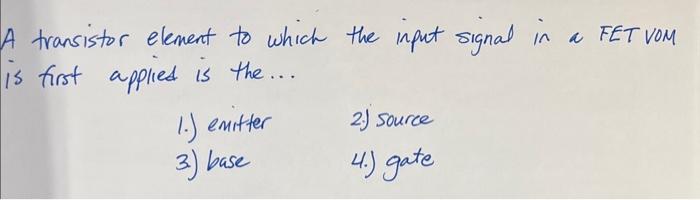 A transistor element to which the input signal in a FET VOM
is first applied is the...
1.) emitter 2.) source
3.) base 4.) gate